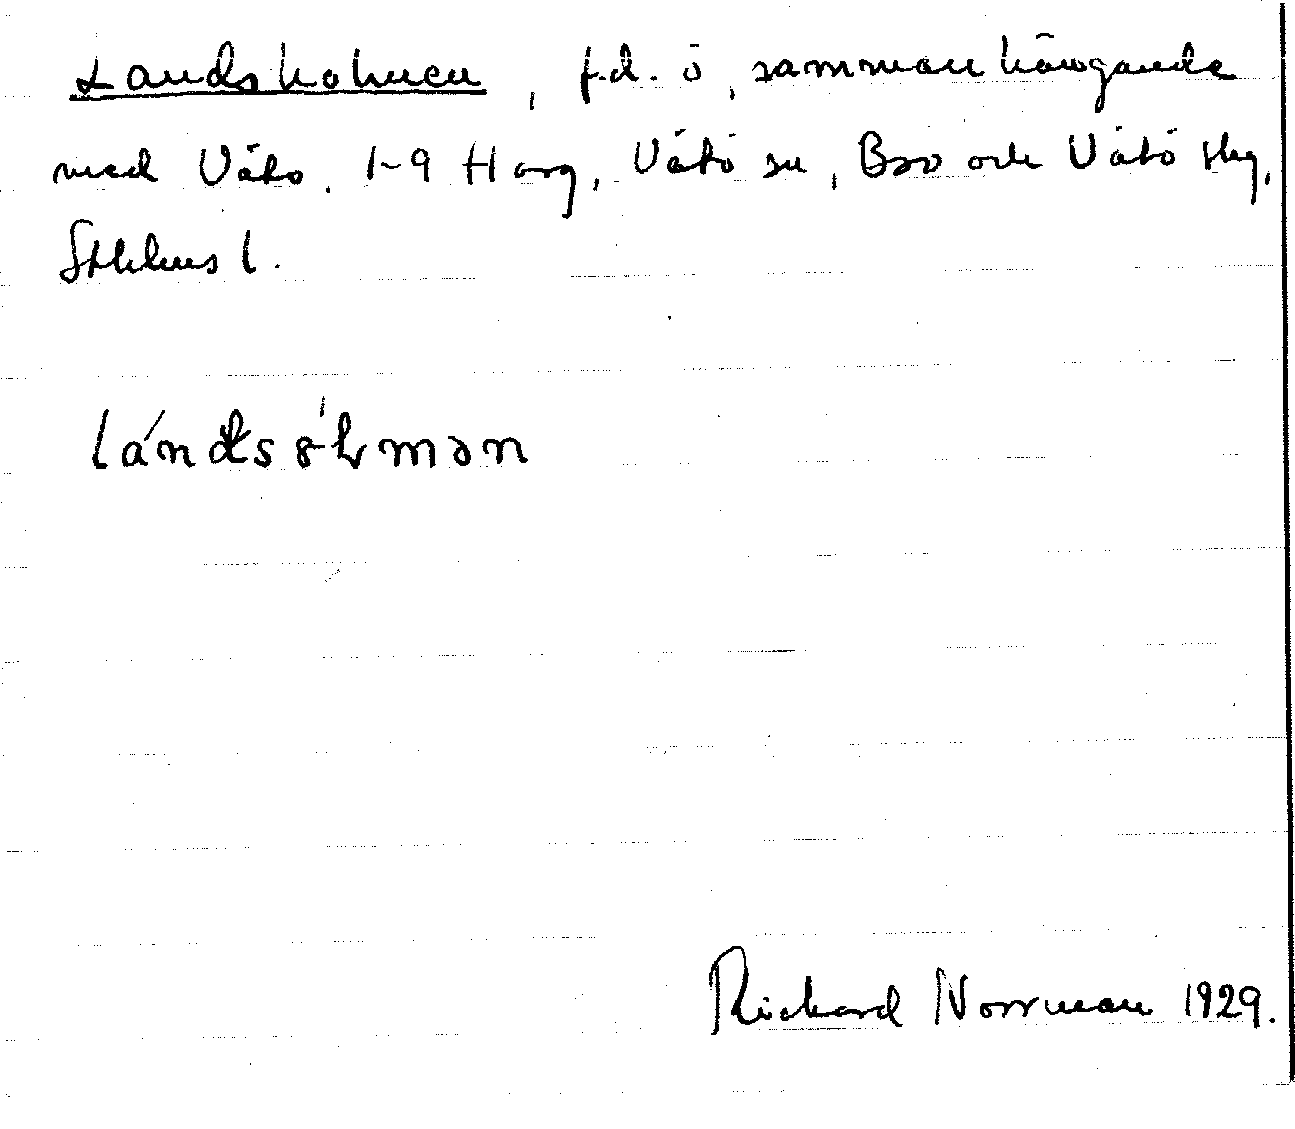 Landsholmen, f.d. ö, sammanhängande
med Vätö. 1-9 Harg, Vätö sn, Bro och Vätö skg,
Sthlms l.
Richard Norrman 1929.